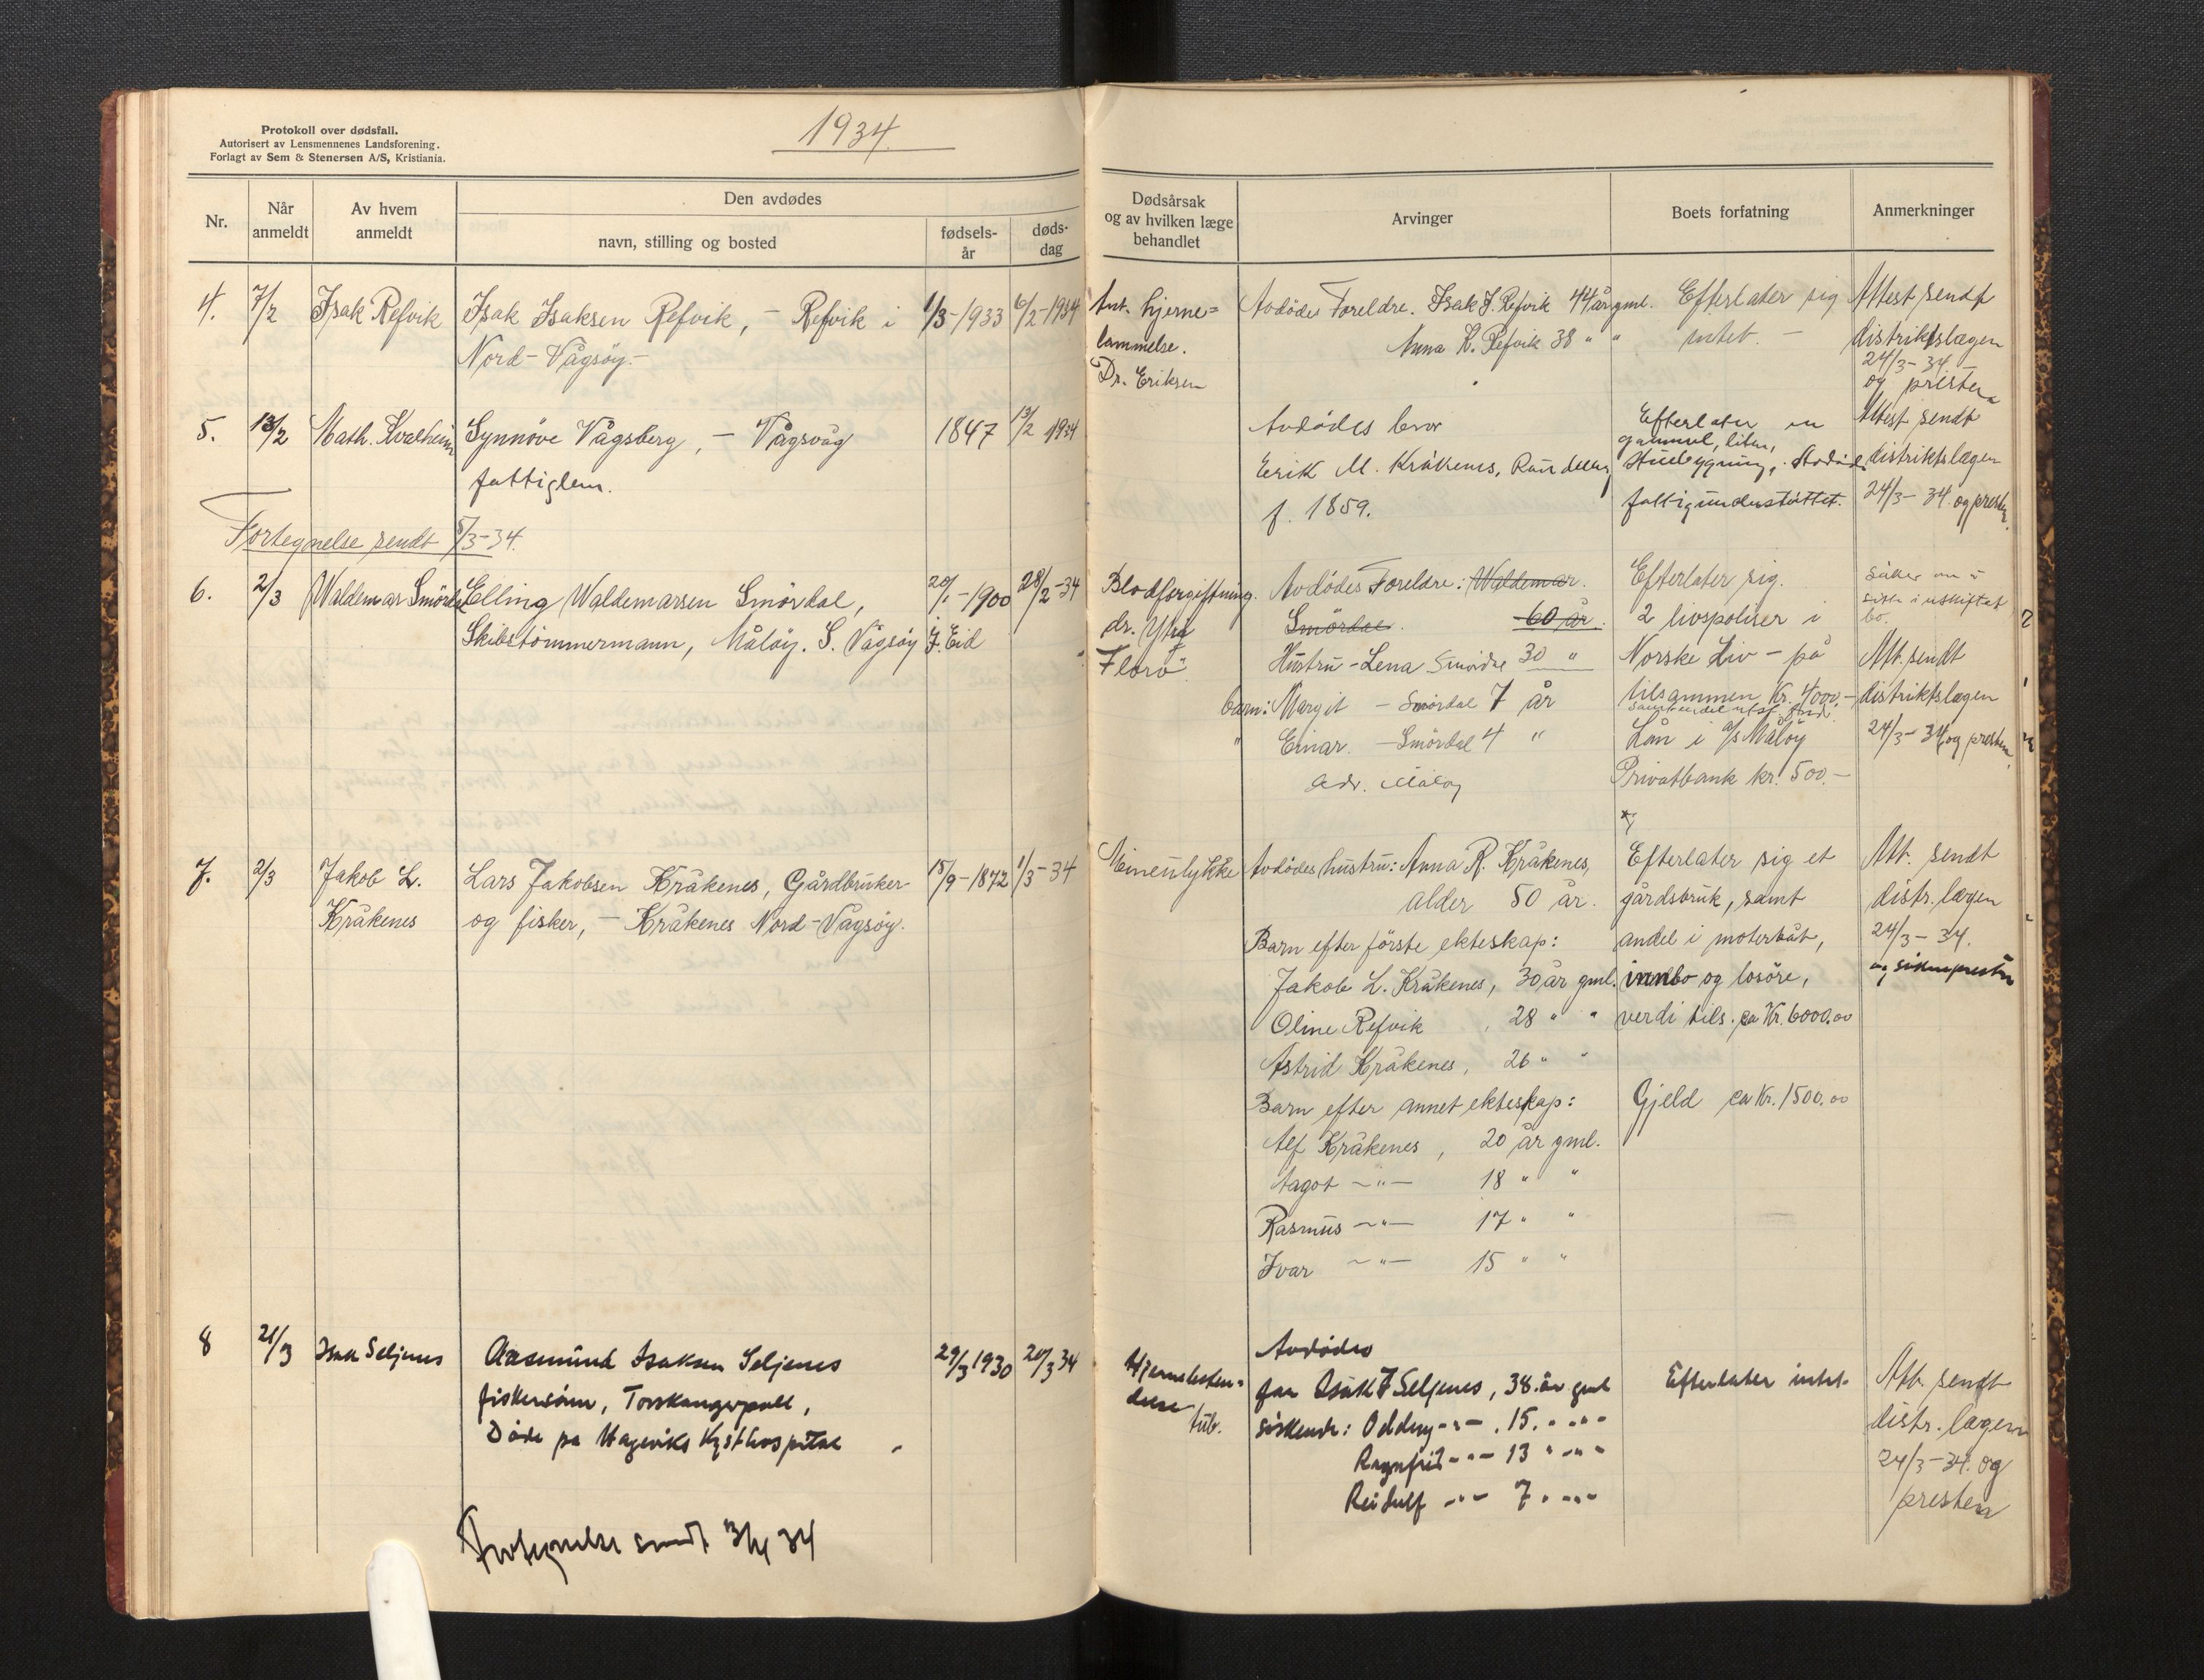 Protokoll over dødsfall.
Autorisert av Lensmennenes Landsforening.
Forlagt av Sem & Stenersen A/S, Kristiania.
1934.
Nr.
Når anmeldt
Av hvem anmeldt
Den avdødes
navn, stilling og bosted
fødsels-
år
døds-
dag
Dødsårsak
og av hvilken læge
behandlet
Arvinger
Boets forfatning
Anmerkninger
4. 7/2 Isak Refvik Isak Isaksen Refvik, – Refvik i 1/3-1933 6/2-1934
Nord-Vågsöy.-
hjerne=
lammelse.
Dr. Eriksen
Avdödes Foreldre. Isak J. Refvik 44 år gml.
Anna R. Refvik 38 " "
Efterlater sig
intet. –
Attest sendt
distriktslægen
24/3-34.
og presten
5. 13/2 Math. Kvalheim Synnöve Vågsberg, – Vågsvåg 1847 13/2 1934
fattiglem.
Avdödes bror
Erik M. Kråkenes,
f. 1859.
Efterlater en
gammel, liten,
fattigunderstöttet.
Attest sendt
distriktslægen
24/3-34. og presten.
Fortegnelse sendt 5/3-34.
6. 2/3 Waldemar Smördal Elling Waldemarsen Smördal, 20/1-1900 28/2-34
Skibstömmermann, Måløy. S. Vågsöy f. Eid
Blodforgiftning.
dr. Ytri
Florö
Avdödes Foreldre: Waldemar.
Smördal. 60 år.
Hustru - Lena Smördal 30 "
barn: Margit – Smördal 7 år
" Einar. – Smördal 4 "
adr. Måløy
Efterlater sig.
2 livspoliser i
Norske Liv – på
tilsammen Kr. 4000.–
Lån i A/S Måløy
Privatbank kr. 500.–
Söker om å
sitte i uskiftet
bo.
Att. sendt
distriktslægen
24/3-34, og presten.
7. 2/3 Jakob L. Lars Jakobsen Kråkenes, Gårdbruker 15/9-1872 1/3-34
Kråkenes og fisker, – Kråkenes Nord-Vågsöy.
Mineulykke
Avdödes hustru: Anna R. Kråkenes,
alder 50 år.
Barn efter förste ekteskap:
Jakob L. Kråkenes, 30 år gml.
Oline Refvik, 28 " "
Astrid Kråkenes, 26 " "
Barn efter annet ekteskap:
Alf Kråkenes, 20 år gml.
Aagot –"– 18 " "
Rasmus –"– 17 " "
Ivar –"– 15 " "
Efterlater sig et
gårdsbruk, samt
andel i moterbåt,
innbo og losöre,
verdi tils. ca Kr. 6000.00
Gjeld ca Kr. 1500.00
Att. sendt
distr. lægen
24/3-34.
og sokneprestn
8 21/3 Isak Seljenes Aasmund Isaksen Seljenes 29/3 1930 20/3 34
fiskersönn, Torskangerpoll,
Döde på Hageviks Kysthospital
Hjernebeten=
delse
tub.
Avdödes
far Isak J Seljenes, 38 år gml
söskende: Oddny -"- . 15. " -"-
Ragnfrid -"- 13 " -"-
Reidulf -"- 7 . -"-
Efterlater intet.
Att. sendt
distr. lægen
24/3-34. og
presten
Fortegnelse sendt 3/4 34